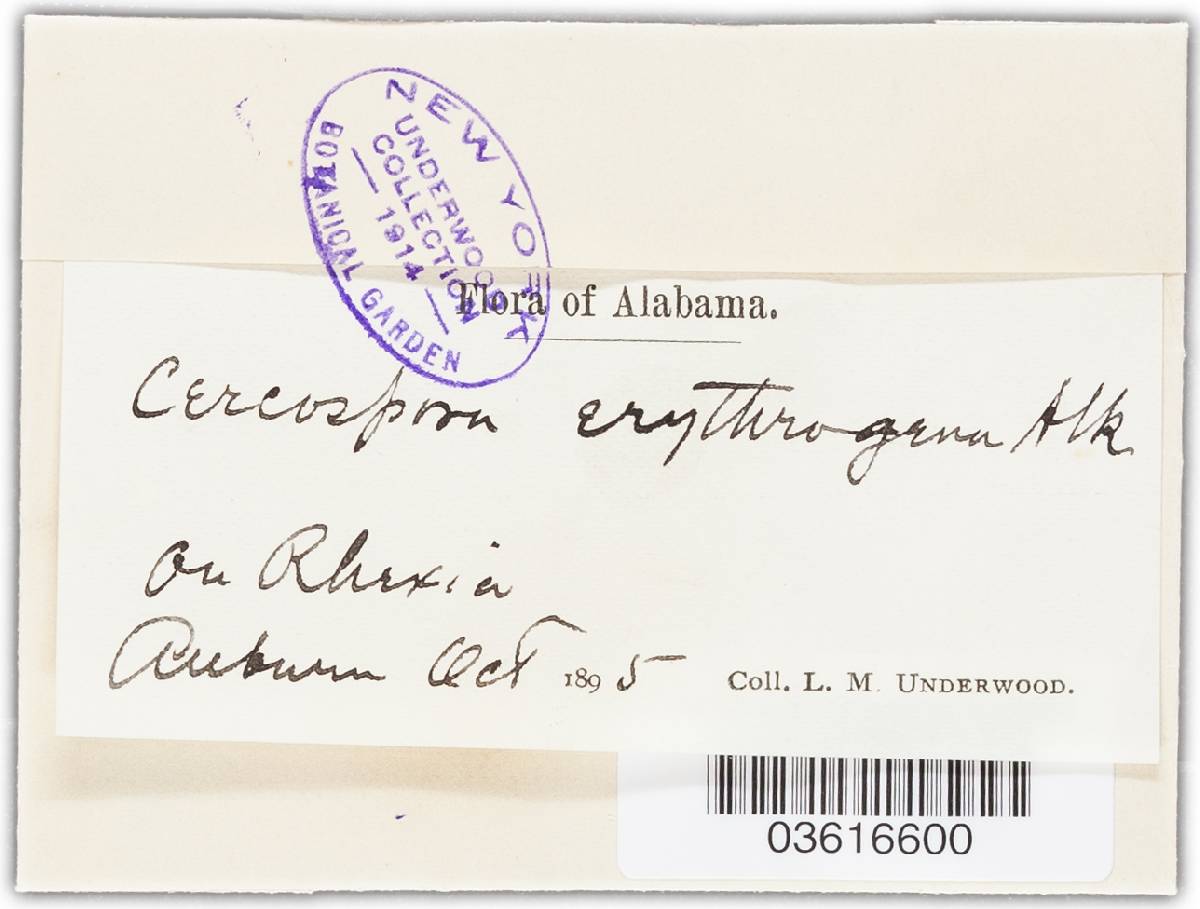 NEW YORK
BOTANICAL GARDEN
UNDERWOOD
COLLECTION
— 1914 —
Flora of Alabama.
Cercospora erythrogena Atk
On Rhexia
Auburn Oct 1895 Coll. L. M. UNDERWOOD.
03616600